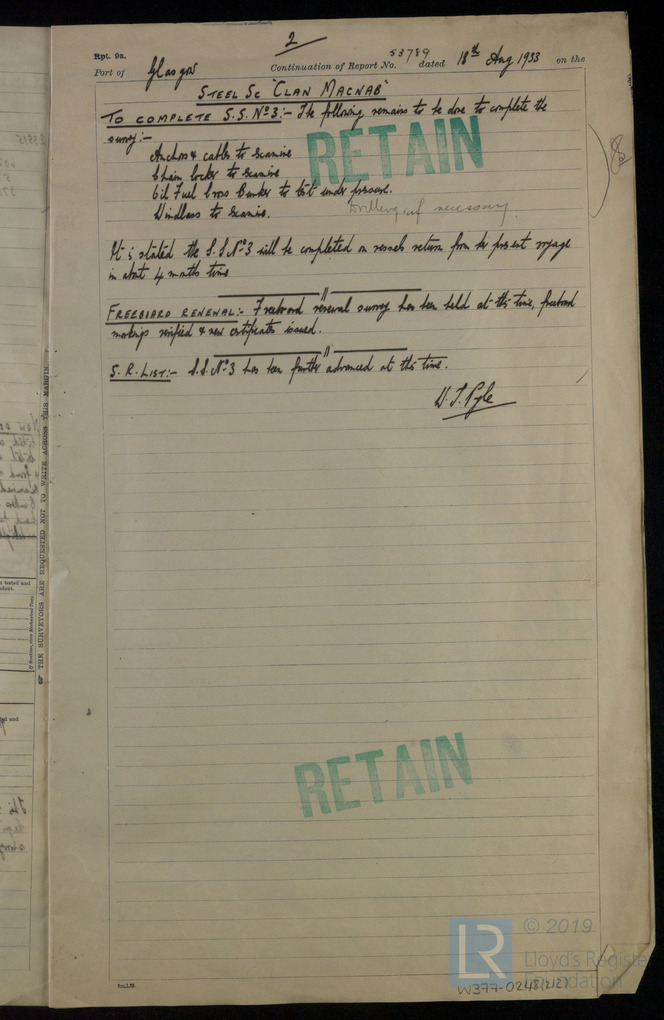 2
Rpt. 9a.
Port of Glasgow Continuation of Report No. 53789 dated 18th Aug 1933 on the
STEEL SC "CLAN MACNAB"
TO COMPLETE S.S. No 3:- The following remains to be done to complete the
survey:-
Anchors & cables to examine
Chain locker to examine
Oil Fuel Cross Bunker to test under pressure.
Windlass to examine. Drilling if necessary.
It is stated the S.S. No 3 will be completed on vessels return from her present voyage
in about 4 months time
FREEBOARD RENEWAL:- Freeboard renewal survey has been held at this time, freeboard
markings verified & new certificates issued.
S.R. LIST:- S.S. No 3 has been further advanced at this time.
RETAIN
RETAIN
THE SURVEYORS ARE REQUESTED NOT TO WRITE ACROSS THIS MARGIN
LR
© 2019
Lloyd's Register
Foundation
W377-0248(2/2)